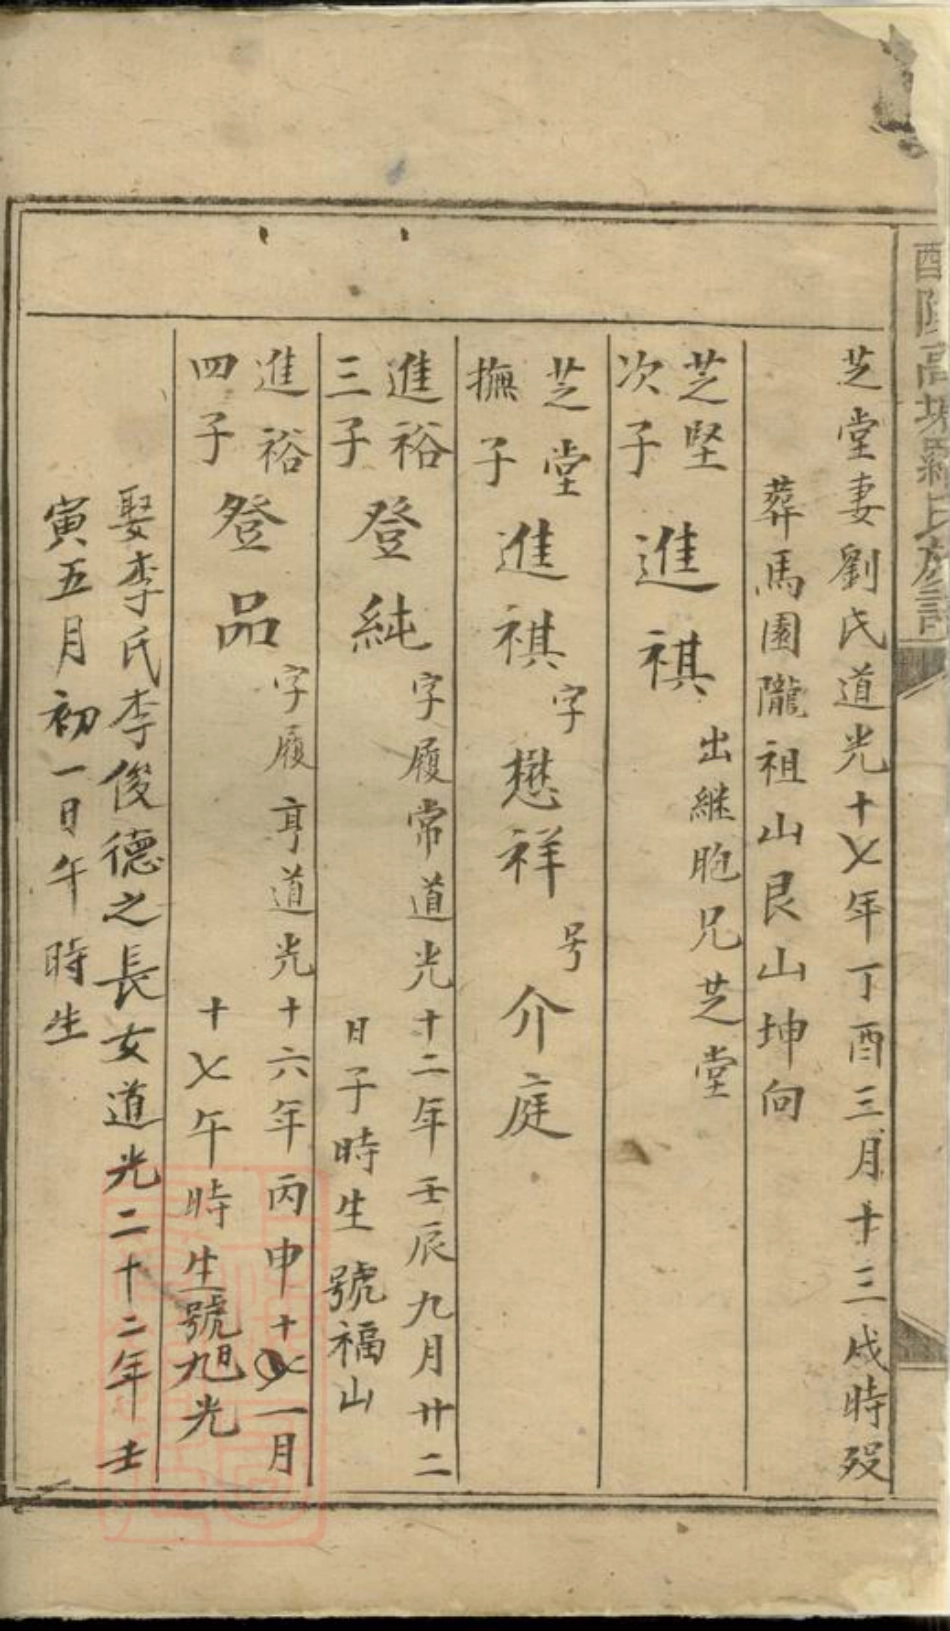 醴陵高塘羅氏族譜
芝堂妻劉氏道光十七年丁酉三月十三戌時歿
葬馬園隴祖山艮山坤向
芝堅
次子
進祺
出継胞兄芝堂
芝堂
撫子
進祺
字
懋祥
号
介庭
進裕
三子
登純
字履常道光十二年壬辰九月廿二
日子時生 號福山
進裕
四子
登品
字履亨道光十六年丙申十一月
十七午時生號旭光
娶李氏李俊德之長女道光二十二年壬
寅五月初一日午時生